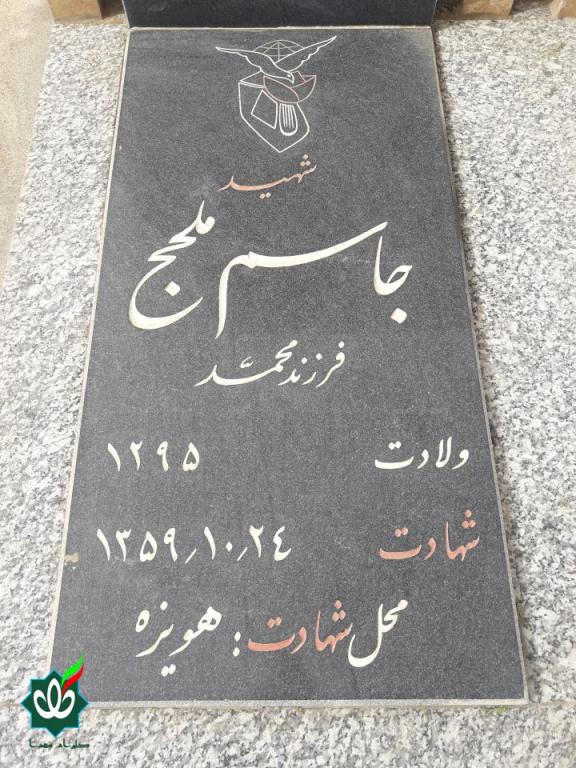 شهید
جاسم ملحج
فرزند محمّد
ولادت ۱۲۹۵
شهادت ۱۳۵۹٫۱۰٫۲۴
محل شهادت : هویزه
گلزار شهدا